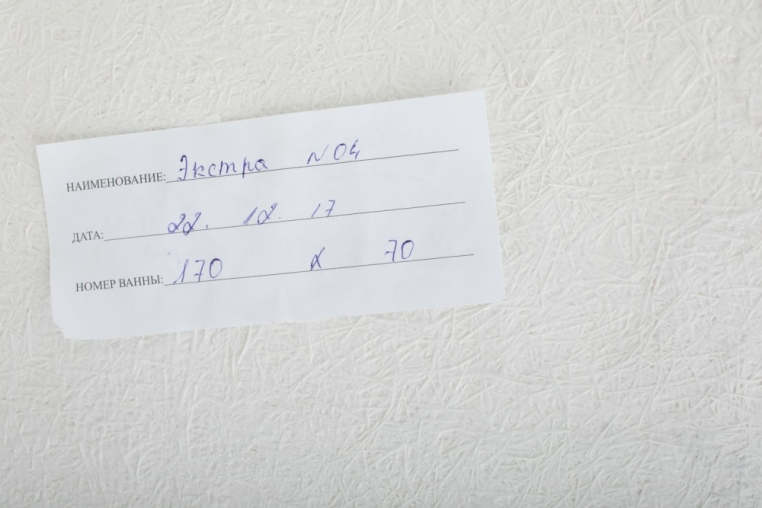 НАИМЕНОВАНИЕ: Экстра N 04
ДАТА: 22. 12. 17
НОМЕР ВАННЫ: 170 х 70